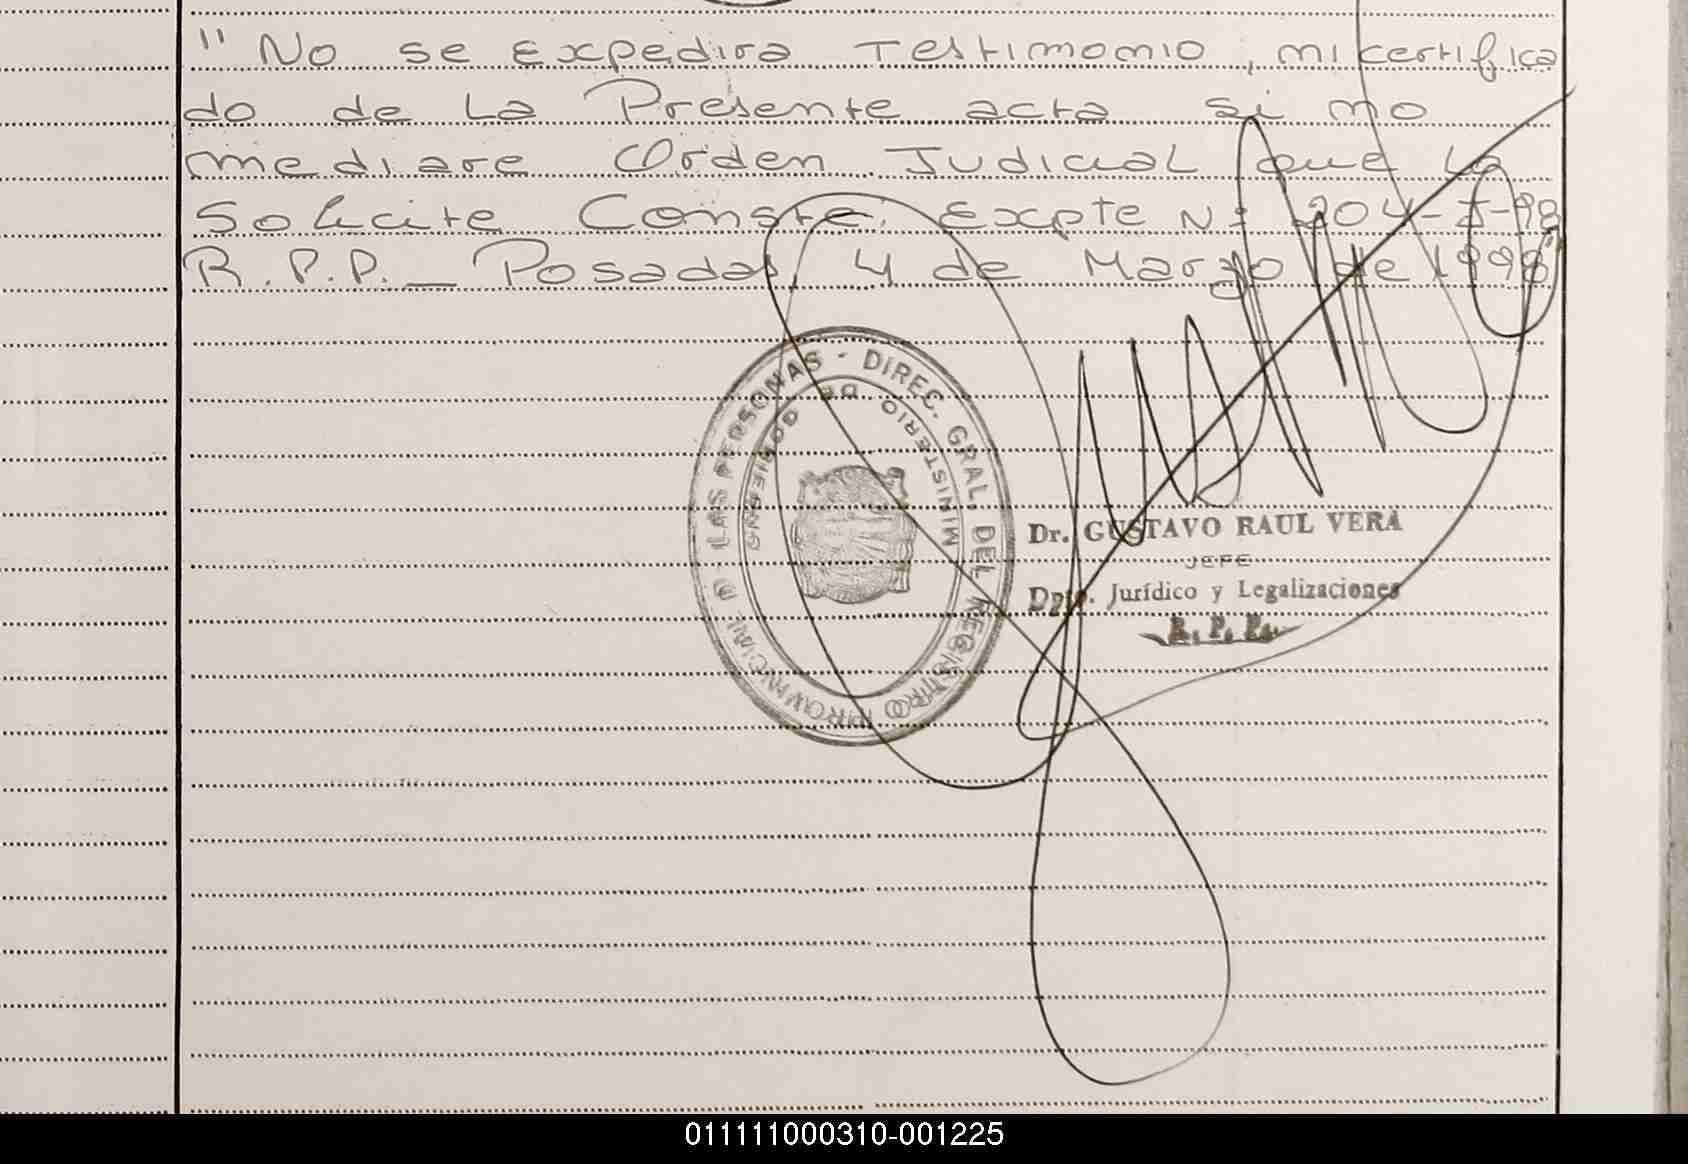 "No se Expedira Testimonio, ni certifica
do de La Presente acta si no
mediare Orden Judicial que La
Solicite Conste. Expte Nº 204-J-98
R.P.P._ Posadas, 4 de Marzo de 1998"
DIREC. GRAL. DEL REGISTRO PROVINCIAL D LAS PERSONAS -
MINISTERIO DE GOBIERNO
Dr. GUSTAVO RAUL VERA
JEFE
Dpto. Jurídico y Legalizaciones
R. P. P.
011111000310-001225